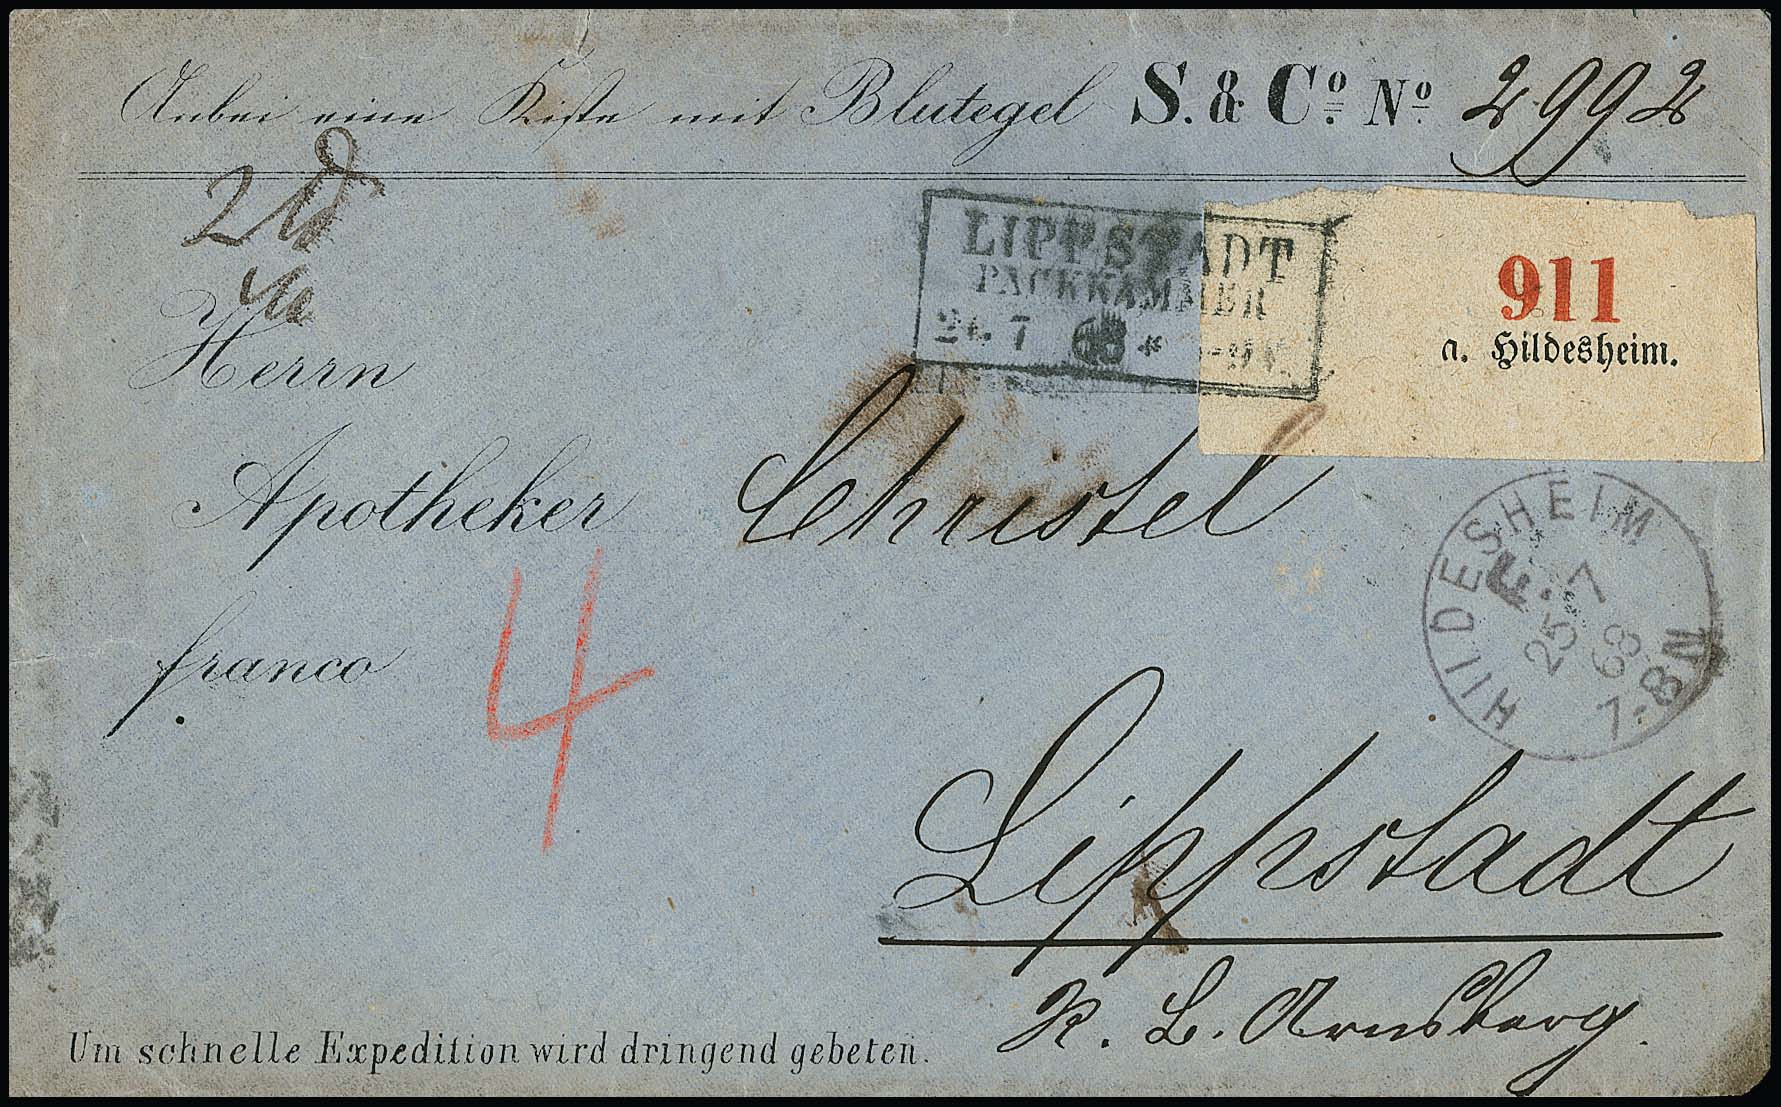 Anbei eine Kiste mit Blutegel S. & Co. No. 2992
LIPPSTADT
PACKKAMMER
24. 7 68 *
911
a. Hildesheim.
Herrn
Apotheker Christel
franco 4
HILDESHEIM
F. 7
25 68
7-8 N
Lippstadt
R. B. Arnsberg.
Um schnelle Expedition wird dringend gebeten.